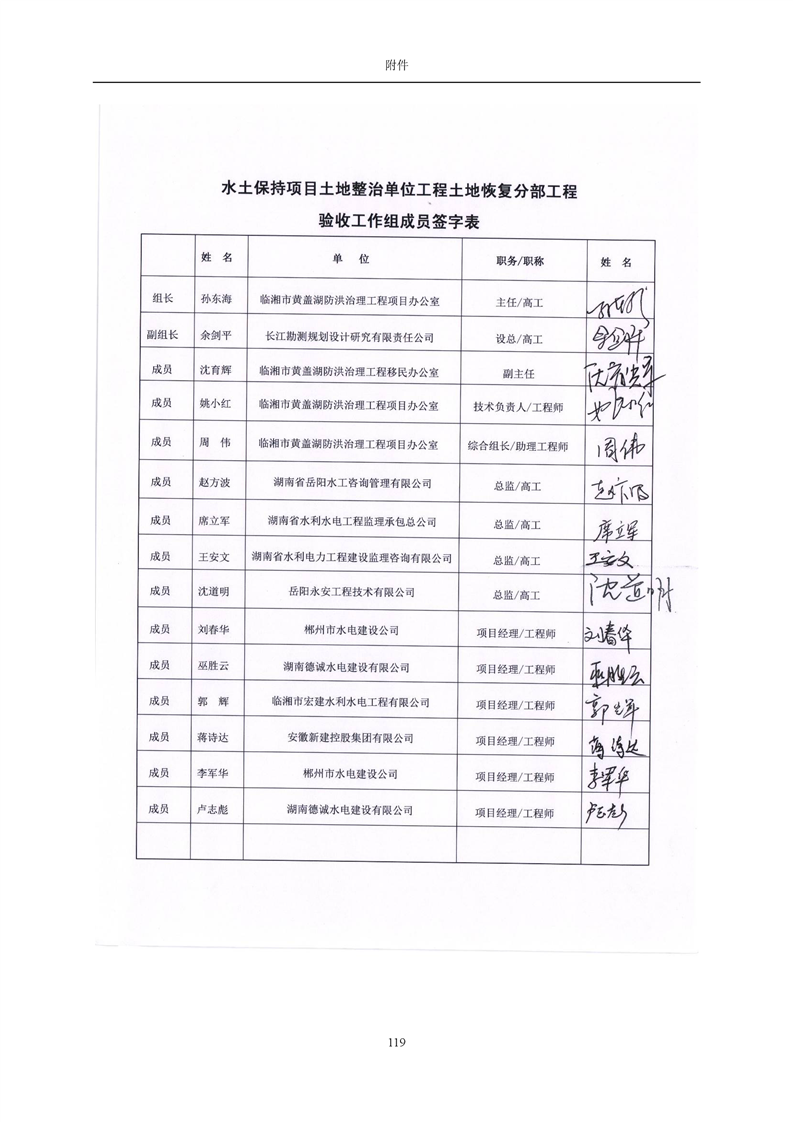 附件
水土保持项目土地整治单位工程土地恢复分部工程
验收工作组成员签字表
姓 名 单 位 职务/职称 姓 名
组长 孙东海 临湘市黄盖湖防洪治理工程项目办公室 主任/高工
副组长 余剑平 长江勘测规划设计研究有限责任公司 设总/高工
成员 沈育辉 临湘市黄盖湖防洪治理工程移民办公室 副主任
成员 姚小红 临湘市黄盖湖防洪治理工程项目办公室 技术负责人/工程师
成员 周 伟 临湘市黄盖湖防洪治理工程项目办公室 综合组长/助理工程师 周伟
成员 赵方波 湖南省岳阳水工咨询管理有限公司 总监/高工
成员 席立军 湖南省水利水电工程监理承包总公司 总监/高工 席立军
成员 王安文 湖南省水利电力工程建设监理咨询有限公司 总监/高工 王安文
成员 沈道明 岳阳永安工程技术有限公司 总监/高工 沈道明
成员 刘春华 郴州市水电建设公司 项目经理/工程师 刘春华
成员 巫胜云 湖南德诚水电建设有限公司 项目经理/工程师 巫胜云
成员 郭 辉 临湘市宏建水利水电工程有限公司 项目经理/工程师 郭辉
成员 蒋诗达 安徽新建控股集团有限公司 项目经理/工程师 蒋诗达
成员 李军华 郴州市水电建设公司 项目经理/工程师 李军华
成员 卢志彪 湖南德诚水电建设有限公司 项目经理/工程师 卢志彪
119